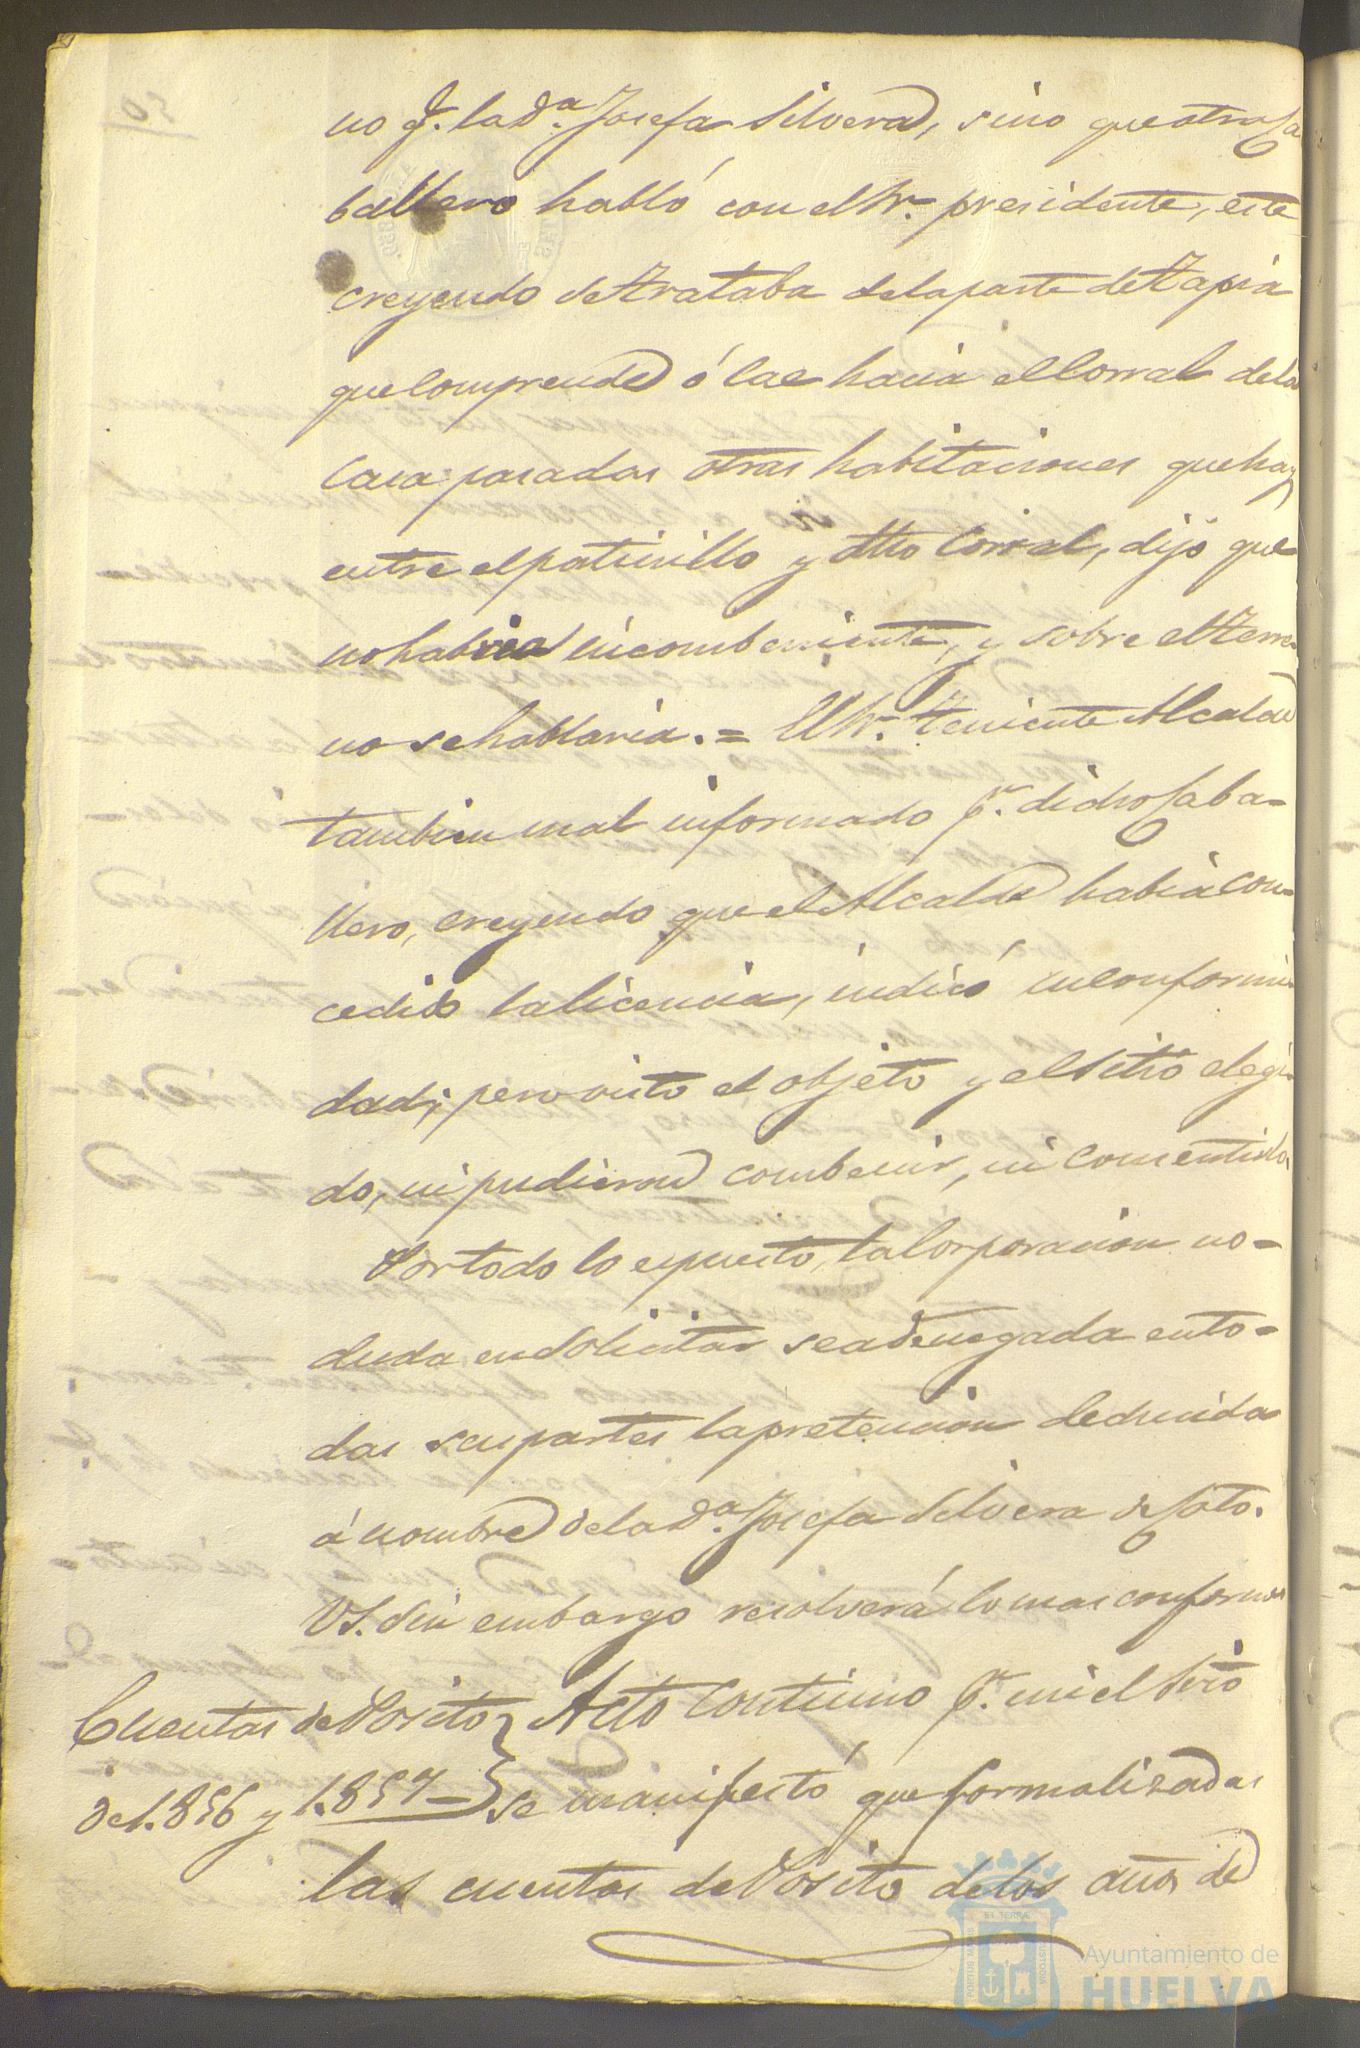 no qe. la Da. Josefa Silvera, sino que otro Ca
ballero habló con el Sr. presidente, este
creyendo se trataba de la parte de tapia
que comprende ó cae hacia el Corral de la
Casa pasadas otras habitaciones que hay
entre el patinillo y dho Corral, dijo que
no habria incombeniente, y sobre el terre
no se hablaria. = El Sr. Teniente Alcalde
tambien mal informado pr. dicho Caba-
llero, creyendo que el Alcalde habia con-
cedido la licencia, indicó su conformi
dad; pero visto el objeto y el sitio elegi
do, ni pudieron combenir, ni consentirlo
Por todo lo espuesto, la Corporacion no-
duda en Solicitar sea denegada en to-
das sus partes la pretencion deducida
á nombre de la Da. Josefa Silvera de Soto.
VS. Sin embargo resolverá lo mas conforme
Cuentas de Posito
de 1.856 y 1.857 =
Acto continuo pr. mi el Srio
se manifestó que formalizadas
las cuentas de Posito de los años de
Ayuntamiento de
HUELVA